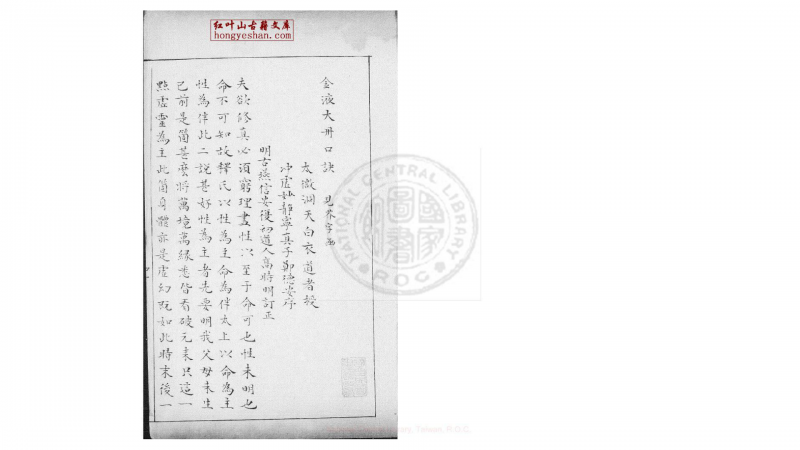 红叶山古籍文库
hongyeshan.com
金液大丹口訣 見養字函
太微洞天白衣道者授
冲虛妙靜寧真子鄭德安序
明古燕信安復初道人高時明訂正
夫欲修真必須窮理盡性以至于命可也性未明也
命不可知故釋氏以性為主命為伴太上以命為主
性為伴此二說甚好性為主者先要明我父母未生
已前是箇甚麼將萬境萬緣悉皆看破元來只這一
點虛靈為主此箇身體亦是虛幻既如此時末後一
NATIONAL CENTRAL LIBRARY
R.O.C.
國家圖書館
Library, Taiwan, R.O.C.